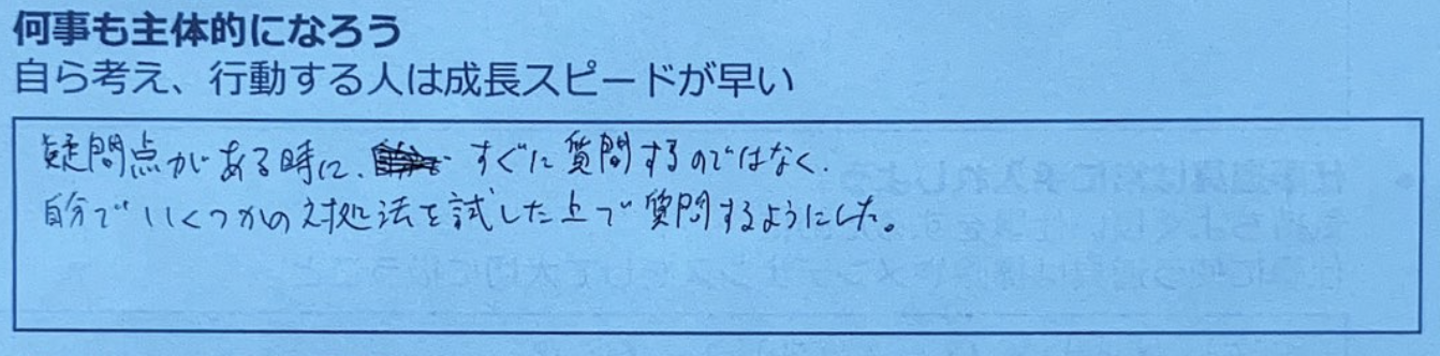 何事も主体的になろう
自ら考え、行動する人は成長スピードが早い
疑問点がある時に、すぐに質問するのではなく、
自分でいくつかの対処法を試した上で質問するようにした。